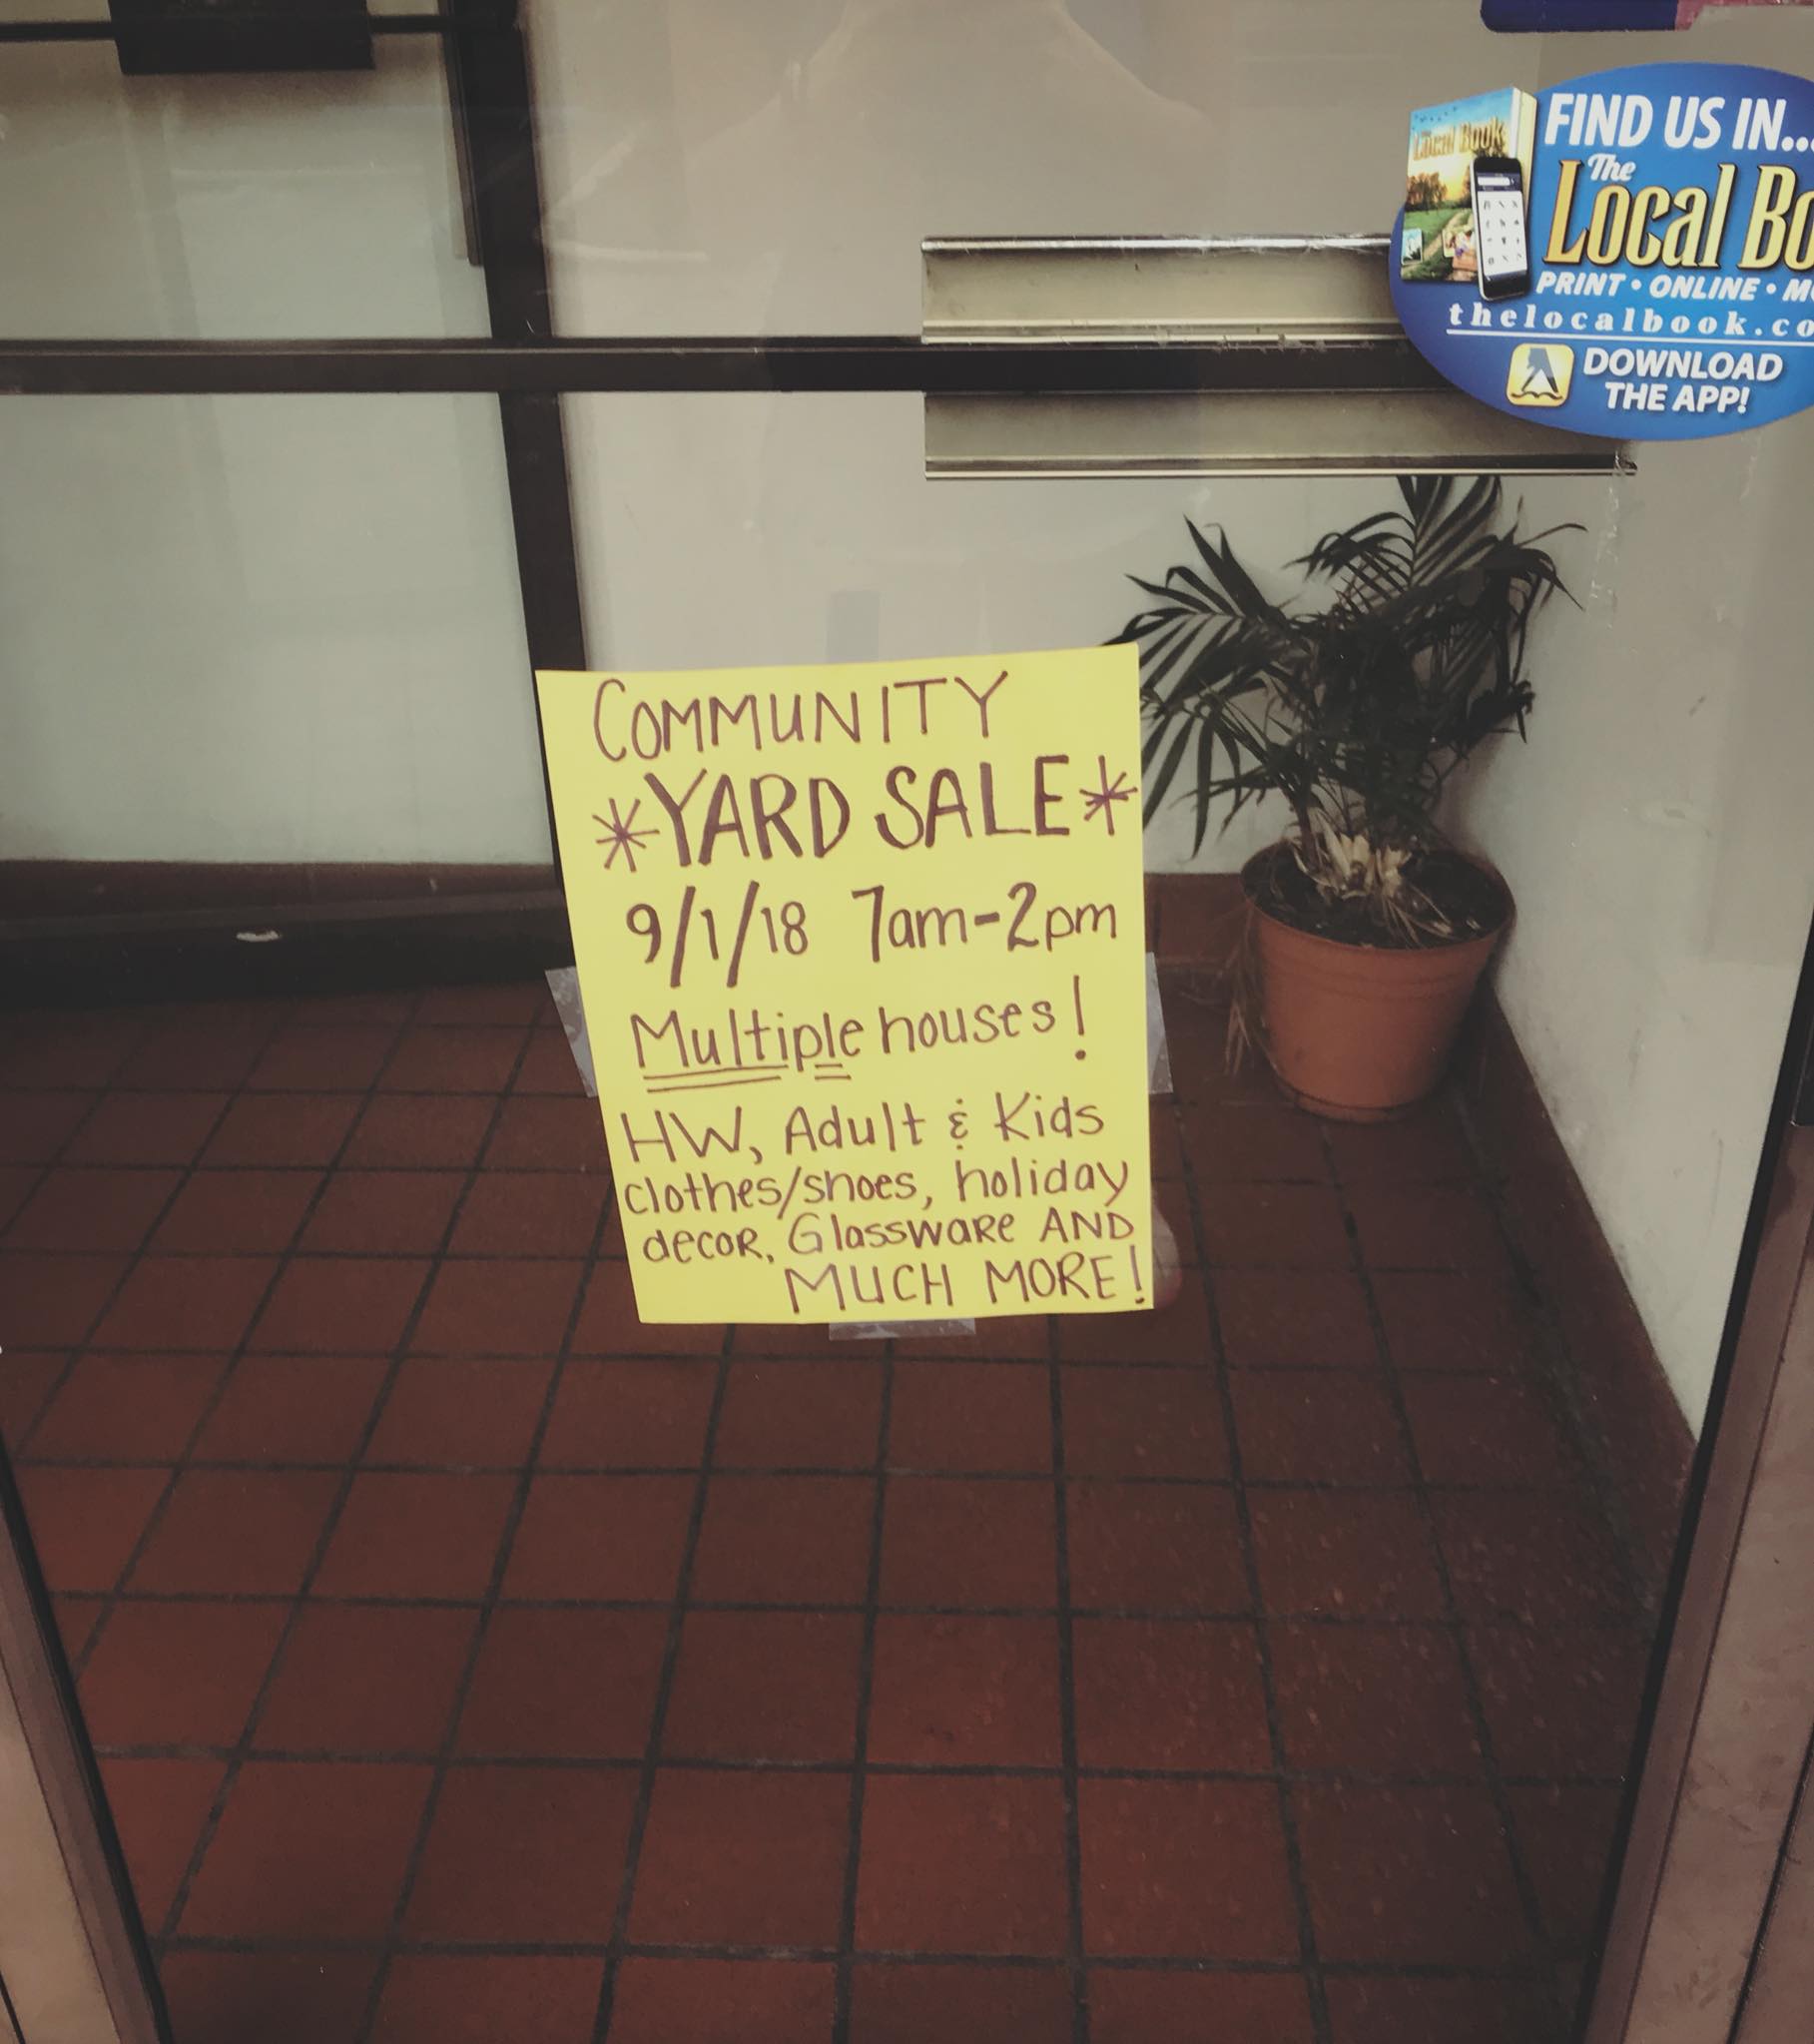 COMMUNITY
*YARD SALE*
9/1/18 7am-2pm
Multiple houses!
HW, Adult & Kids
clothes/shoes, holiday
decor, Glassware AND
MUCH MORE!
FIND US IN...
The
Local Bo
PRINT • ONLINE • MO
thelocalbook.co
DOWNLOAD
THE APP!
Local Book